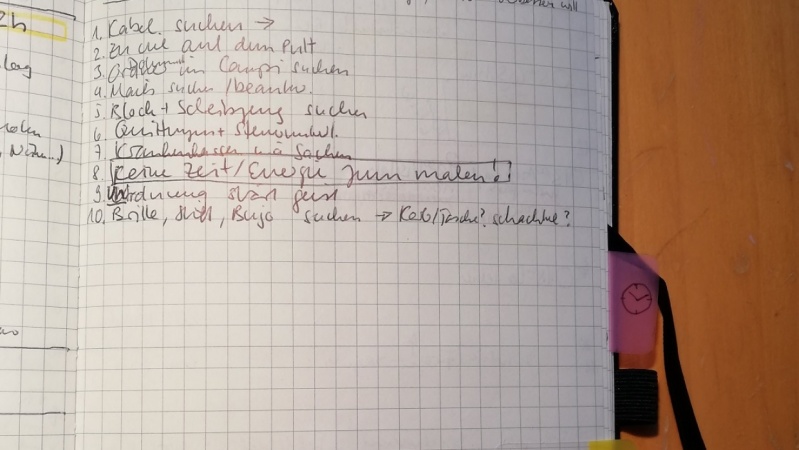 2h
will
1. Kabel suchen →
2. zu viel auf dem Pult
3. Ordner im Compi suchen
4. Mails suchen / beantw.
5. Block + Schreibzeug suchen
6. Quittungen + Steuerunterl.
7. Krankenkassen u.ä Sachen
8. Keine Zeit/Energie zum malen!
9. Unordnung stört Geist
10. Brille, Stift, Bujo suchen → Korb/Tasche? schachtel?